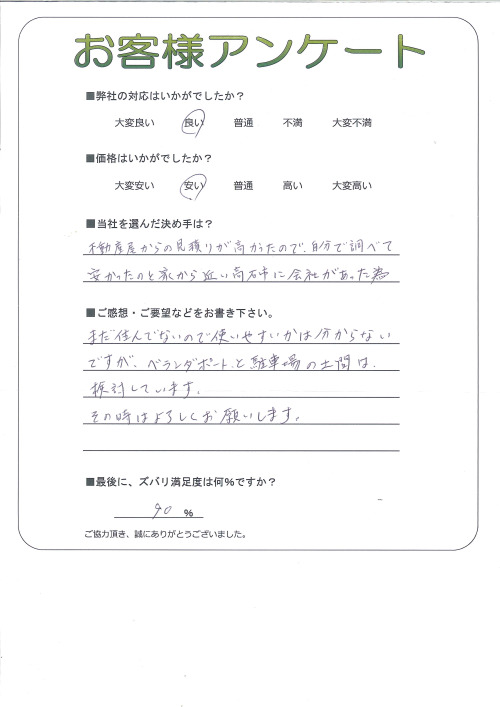 お客様アンケート
■弊社の対応はいかがでしたか？
大変良い 良い 普通 不満 大変不満
■価格はいかがでしたか？
大変安い 安い 普通 高い 大変高い
■当社を選んだ決め手は？
不動産屋からの見積りが高かったので、自分で調べて
安かったのと家から近い高石市に会社があった為
■ご感想・ご要望などをお書き下さい。
まだ住んでないので使いやすいかは分からない
ですが、ベランダポートと駐車場の土間は、
検討しています。
その時はよろしくお願いします。
■最後に、ズバリ満足度は何％ですか？
90 %
ご協力頂き、誠にありがとうございました。